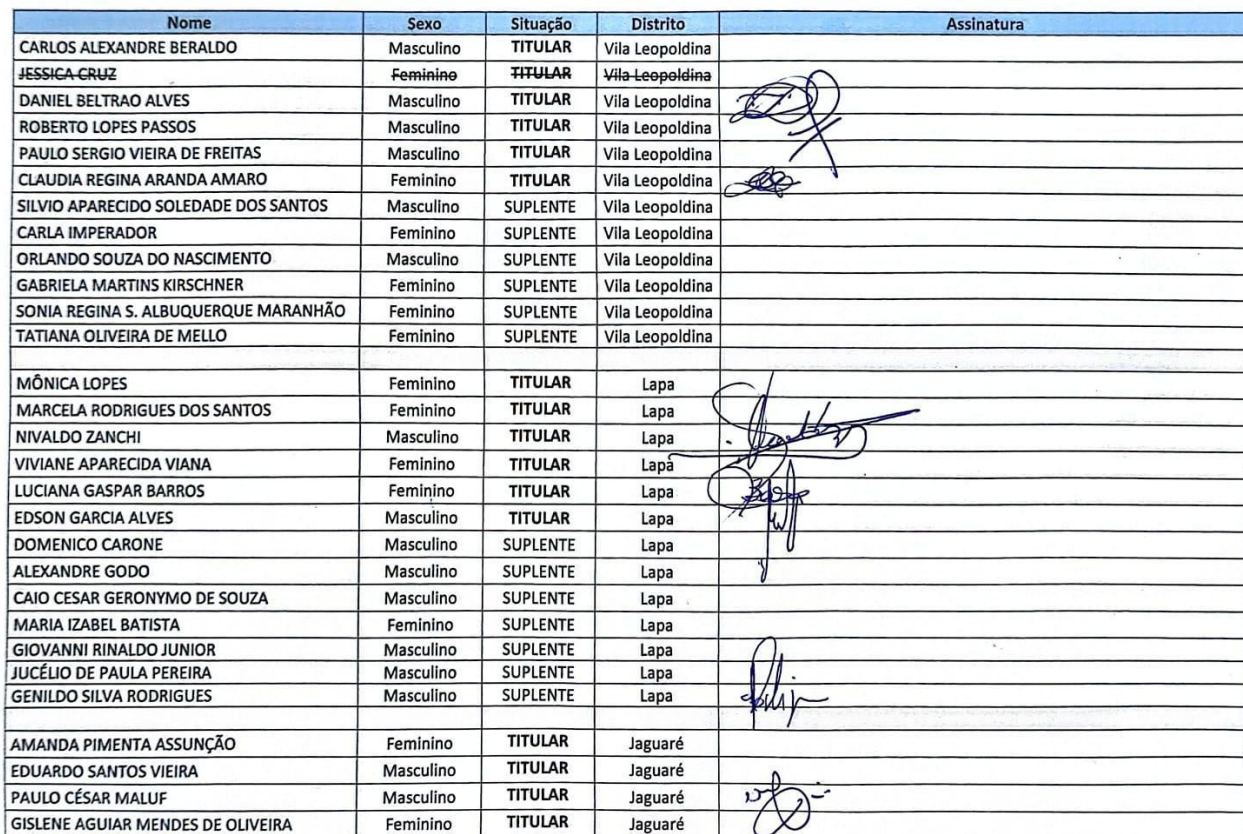 Nome Sexo Situação Distrito Assinatura
CARLOS ALEXANDRE BERALDO Masculino TITULAR Vila Leopoldina
JESSICA CRUZ Feminino TITULAR Vila Leopoldina
DANIEL BELTRAO ALVES Masculino TITULAR Vila Leopoldina
ROBERTO LOPES PASSOS Masculino TITULAR Vila Leopoldina
PAULO SERGIO VIEIRA DE FREITAS Masculino TITULAR Vila Leopoldina
CLAUDIA REGINA ARANDA AMARO Feminino TITULAR Vila Leopoldina
SILVIO APARECIDO SOLEDADE DOS SANTOS Masculino SUPLENTE Vila Leopoldina
CARLA IMPERADOR Feminino SUPLENTE Vila Leopoldina
ORLANDO SOUZA DO NASCIMENTO Masculino SUPLENTE Vila Leopoldina
GABRIELA MARTINS KIRSCHNER Feminino SUPLENTE Vila Leopoldina
SONIA REGINA S. ALBUQUERQUE MARANHÃO Feminino SUPLENTE Vila Leopoldina
TATIANA OLIVEIRA DE MELLO Feminino SUPLENTE Vila Leopoldina
MÔNICA LOPES Feminino TITULAR Lapa
MARCELA RODRIGUES DOS SANTOS Feminino TITULAR Lapa
NIVALDO ZANCHI Masculino TITULAR Lapa
VIVIANE APARECIDA VIANA Feminino TITULAR Lapa
LUCIANA GASPAR BARROS Feminino TITULAR Lapa
EDSON GARCIA ALVES Masculino TITULAR Lapa
DOMENICO CARONE Masculino SUPLENTE Lapa
ALEXANDRE GODO Masculino SUPLENTE Lapa
CAIO CESAR GERONYMO DE SOUZA Masculino SUPLENTE Lapa
MARIA IZABEL BATISTA Feminino SUPLENTE Lapa
GIOVANNI RINALDO JUNIOR Masculino SUPLENTE Lapa
JUCÉLIO DE PAULA PEREIRA Masculino SUPLENTE Lapa
GENILDO SILVA RODRIGUES Masculino SUPLENTE Lapa
AMANDA PIMENTA ASSUNÇÃO Feminino TITULAR Jaguaré
EDUARDO SANTOS VIEIRA Masculino TITULAR Jaguaré
PAULO CÉSAR MALUF Masculino TITULAR Jaguaré
GISLENE AGUIAR MENDES DE OLIVEIRA Feminino TITULAR Jaguaré